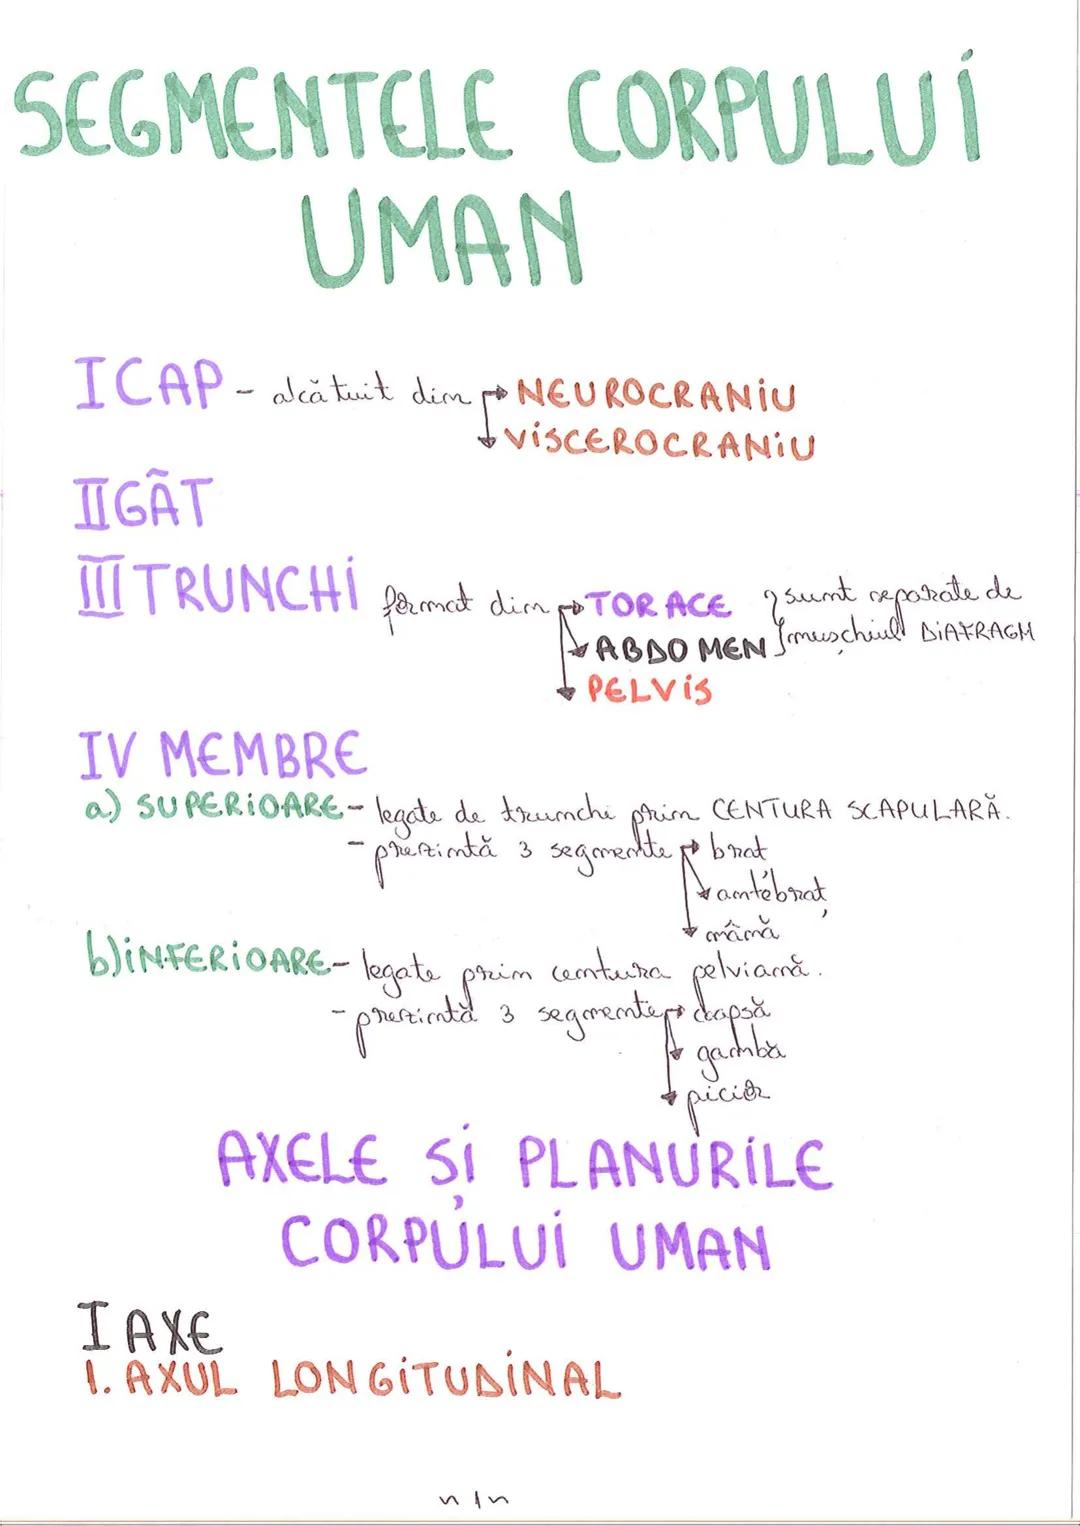 SEGMENTELE CORPULUI
UMAN
I CAP - alcătuit din → NEUROCRANIU
VISCEROCRANIU
II GÂT
III TRUNCHI format din → TORACE } sunt separate de
ABDOMEN mușchiul DIAFRAGM
PELVIS
IV MEMBRE
a) SUPERIOARE - legate de trunchi prin CENTURA SCAPULARĂ.
- prezintă 3 segmente → brat
antebraț
mână
b) INFERIOARE - legate prim centura pelviană.
- prezintă 3 segmente → coapsă
gambă
picior
AXELE ȘI PLANURILE
CORPULUI UMAN
I AXE
1. AXUL LONGITUDINAL
n 1 n